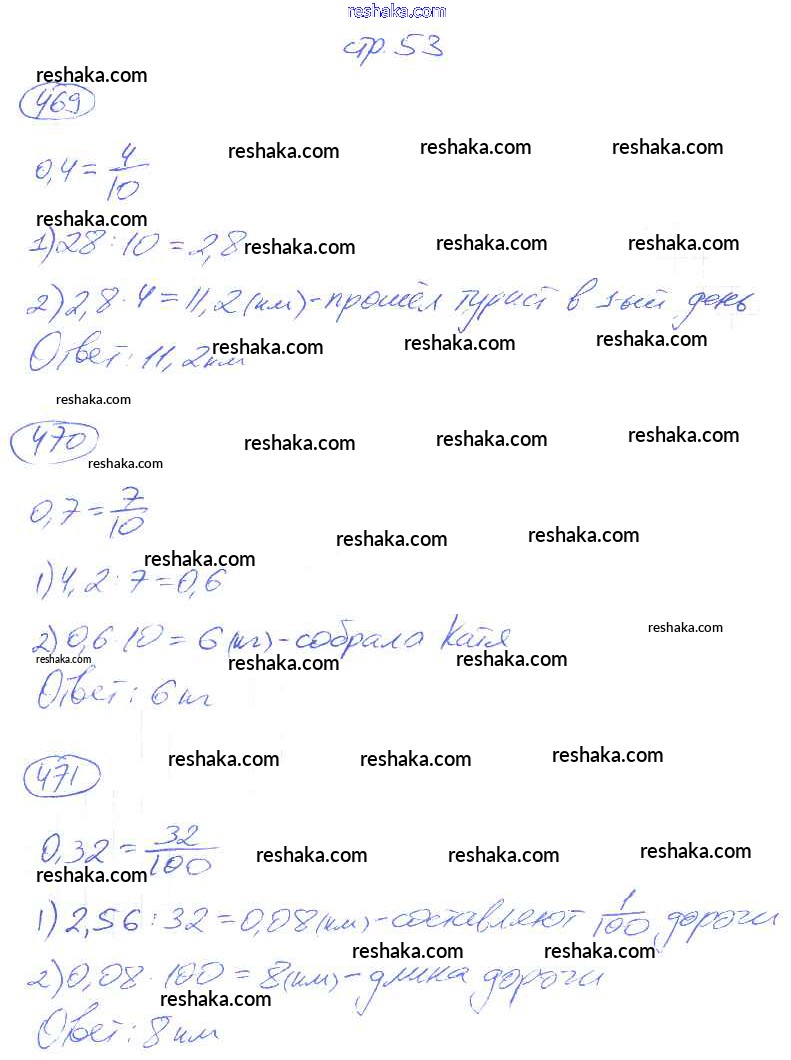 reshaka.com
стр. 53
reshaka.com
469
0,4 = 4/10
reshaka.com reshaka.com reshaka.com
reshaka.com
1) 28 : 10 = 2,8
reshaka.com reshaka.com reshaka.com
2) 2,8 · 4 = 11,2 (км) - прошёл турист в 1ый день
reshaka.com reshaka.com reshaka.com
Ответ: 11,2 км
reshaka.com
470
reshaka.com reshaka.com reshaka.com
reshaka.com
0,7 = 7/10
reshaka.com reshaka.com
reshaka.com
1) 4,2 : 7 = 0,6
2) 0,6 · 10 = 6 (кг) - собрала Катя
reshaka.com
reshaka.com reshaka.com reshaka.com
Ответ: 6 кг
reshaka.com reshaka.com reshaka.com
471
0,32 = 32/100
reshaka.com reshaka.com reshaka.com
reshaka.com
1) 2,56 : 32 = 0,08 (км) - составляют 1/100 дороги
reshaka.com reshaka.com
2) 0,08 · 100 = 8 (км) - длина дороги
reshaka.com
Ответ: 8 км